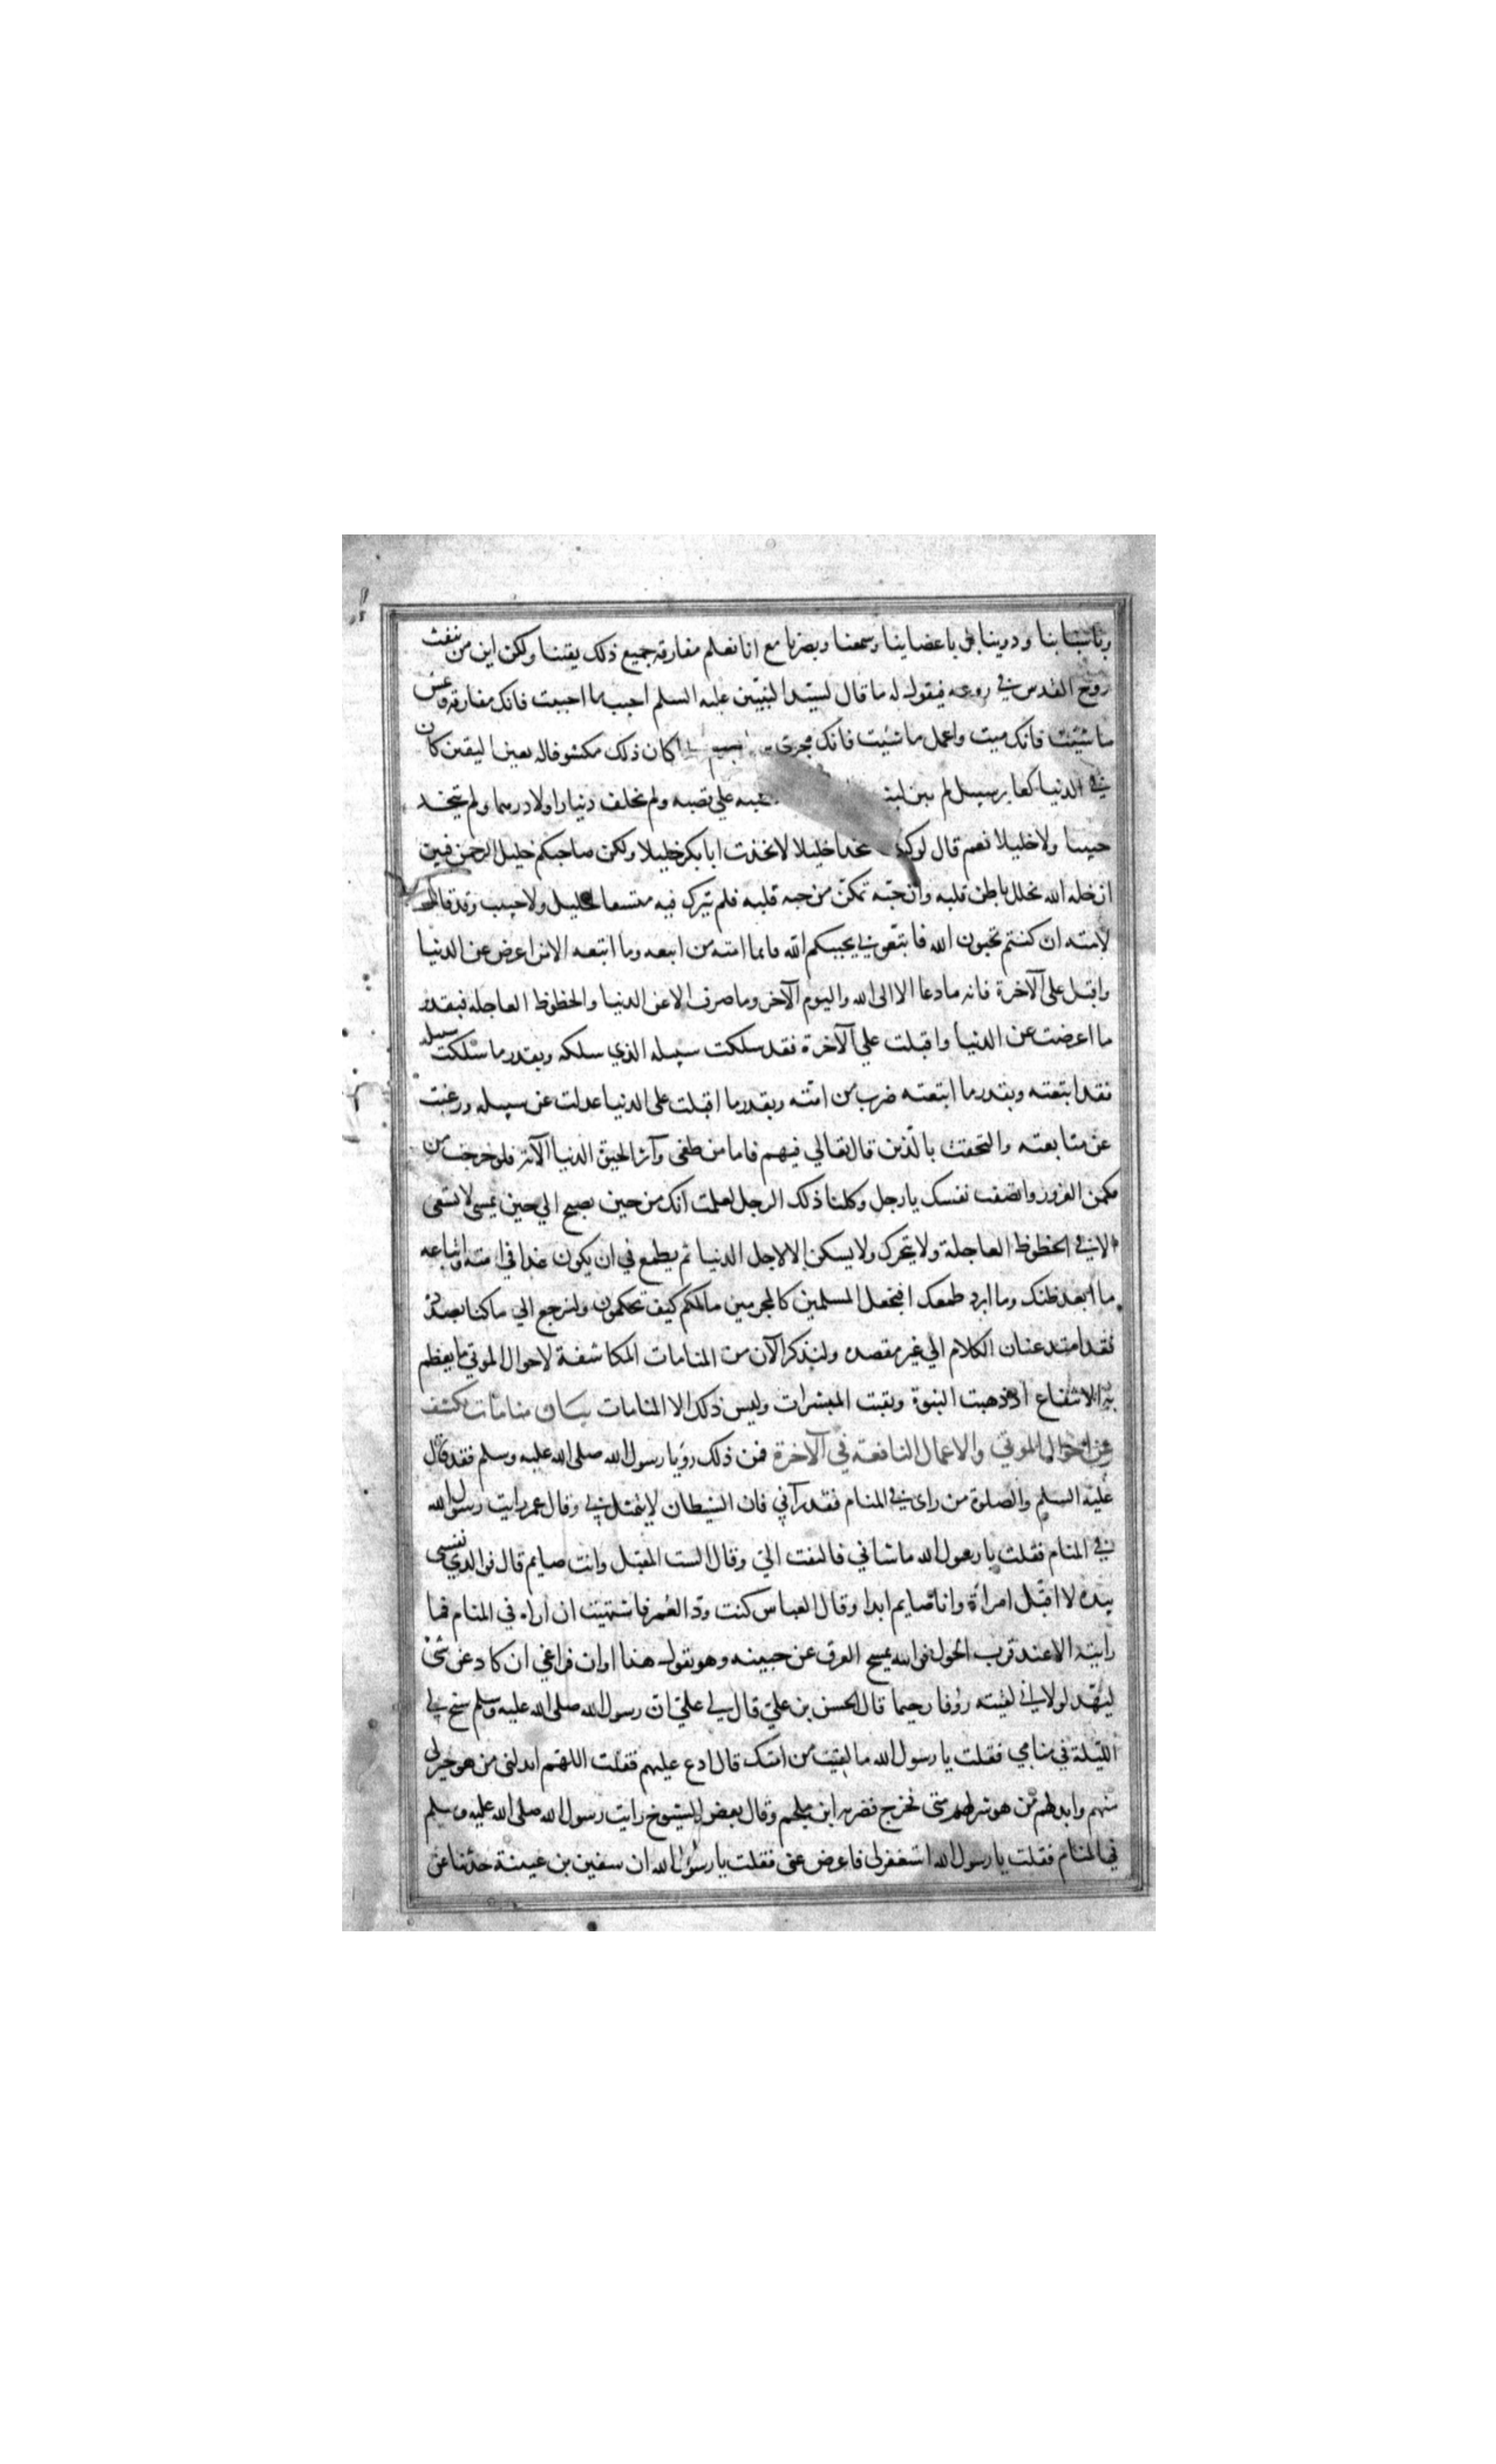 وباسبابنا ودوينا بل باعضاينا وسمعنا وبصرنا مع انا نعلم مفارقة جميع ذلك يقينا ولكن اين من ينفث
روح القدس في روعه فيقول له ما قال لسيد النبيين عليه السلم احبب ما احببت فانك مفارقه وعش
ما شيت فانك ميت واعمل ما شيت فانك مجزى به كان ذلك مكشوفا له بعين اليقين كان
في الدنيا كعابر سبيل لم علي قصبه ولم يخلف دينارا ولا درهما ولم يتخذ
حبيبا ولا خليلا نعم قال لو كنت متخذا خليلا لاتخذت ابا بكر خليلا ولكن صاحبكم خليل الرحمن فبين
ان خله الله تخلل باطن قلبه وان حبه تمكن من حبه قلبه فلم يترك فيه متسعا لخليل ولا حبيب وقد قال
لامته ان كنتم تحبون الله فاتبعوني يحببكم الله فانما امته من اتبعه وما اتبعه الا من اعرض عن الدنيا
واقبل على الآخرة فانه ما دعا الا الى الله واليوم الآخر وما صرف الا عن الدنيا والحظوظ العاجله فبقدر
ما اعرضت عن الدنيا واقبلت علي الآخرة فقد سلكت سبيله الذي سلكه وبقدر ما سلكت سبيله
فقد اتبعته وبقدر ما اتبعته صرت من امته وبقدر ما اقبلت على الدنيا عدلت عن سبيله ورغبت
عن متابعته والتحقت بالذين قال تعالي فيهم فاما من طغى وآثر الحيوة الدنيا الآية فلو خرجت من
مكمن الغرور وانصفت نفسك يا رجل وكلنا ذلك الرجل لعلمت انك من حين تصبح الي حين تمسى لا تسعى
الا في الحظوظ العاجلة ولا يتحرك ولا يسكن الا لاجل الدنيا ثم يطمع في ان يكون غدا في امته واتباعه
ما ابعد ظنك وما ابرد طمعك افنجعل المسلمين كالمجرمين ما لكم كيف تحكمون ولنرجع الي ما كنا بصدده
فقد امتد عنان الكلام الي غير مقصده ولنذكر الآن من المنامات المكاشفة لاحوال الموتي ما يعظم
به الانتفاع اذ ذهبت النبوة وبقيت المبشرات وليس ذلك الا المنامات بيان منامات تكشف
عن احوال الموتي والاعمال النافعة في الآخرة فمن ذلك رؤيا رسول الله صلى الله عليه وسلم فقد قال
عليه السلم والصلوة من راى في المنام فقد رآني فان الشيطان لا يتمثل بي وقال عمر رايت رسول الله
في المنام فقلت يا رسول الله ما شاني فالتفت الي وقال الست المقبل وانت صايم قال فوالذي نفسي
بيده لا اقبل امرأة وانا صايم ابدا وقال العباس كنت ود العمر فاشتهيت ان اراه في المنام فما
رايته الا عند قرب الحول فرايته يمسح العرق عن جبينه وهو يقول هذا اوان فراغي ان كاد عرشي
ليهد لولا اني لقيته رؤفا رحيما قال الحسن بن علي قال لي علي ان رسول الله صلى الله عليه وسلم سنح لي
الليلة في منامي فقلت يا رسول الله ما لقيت من امتك قال ادع عليهم فقلت اللهم ابدلني من هو خير لي
منهم وابدلهم من هو شر لهم مني فخرج فضربه ابن ملجم وقال بعض الشيوخ رايت رسول الله صلى الله عليه وسلم
في المنام فقلت يا رسول الله استغفر لي فاعرض عني فقلت يا رسول الله ان سفين بن عيينة حدثنا عن